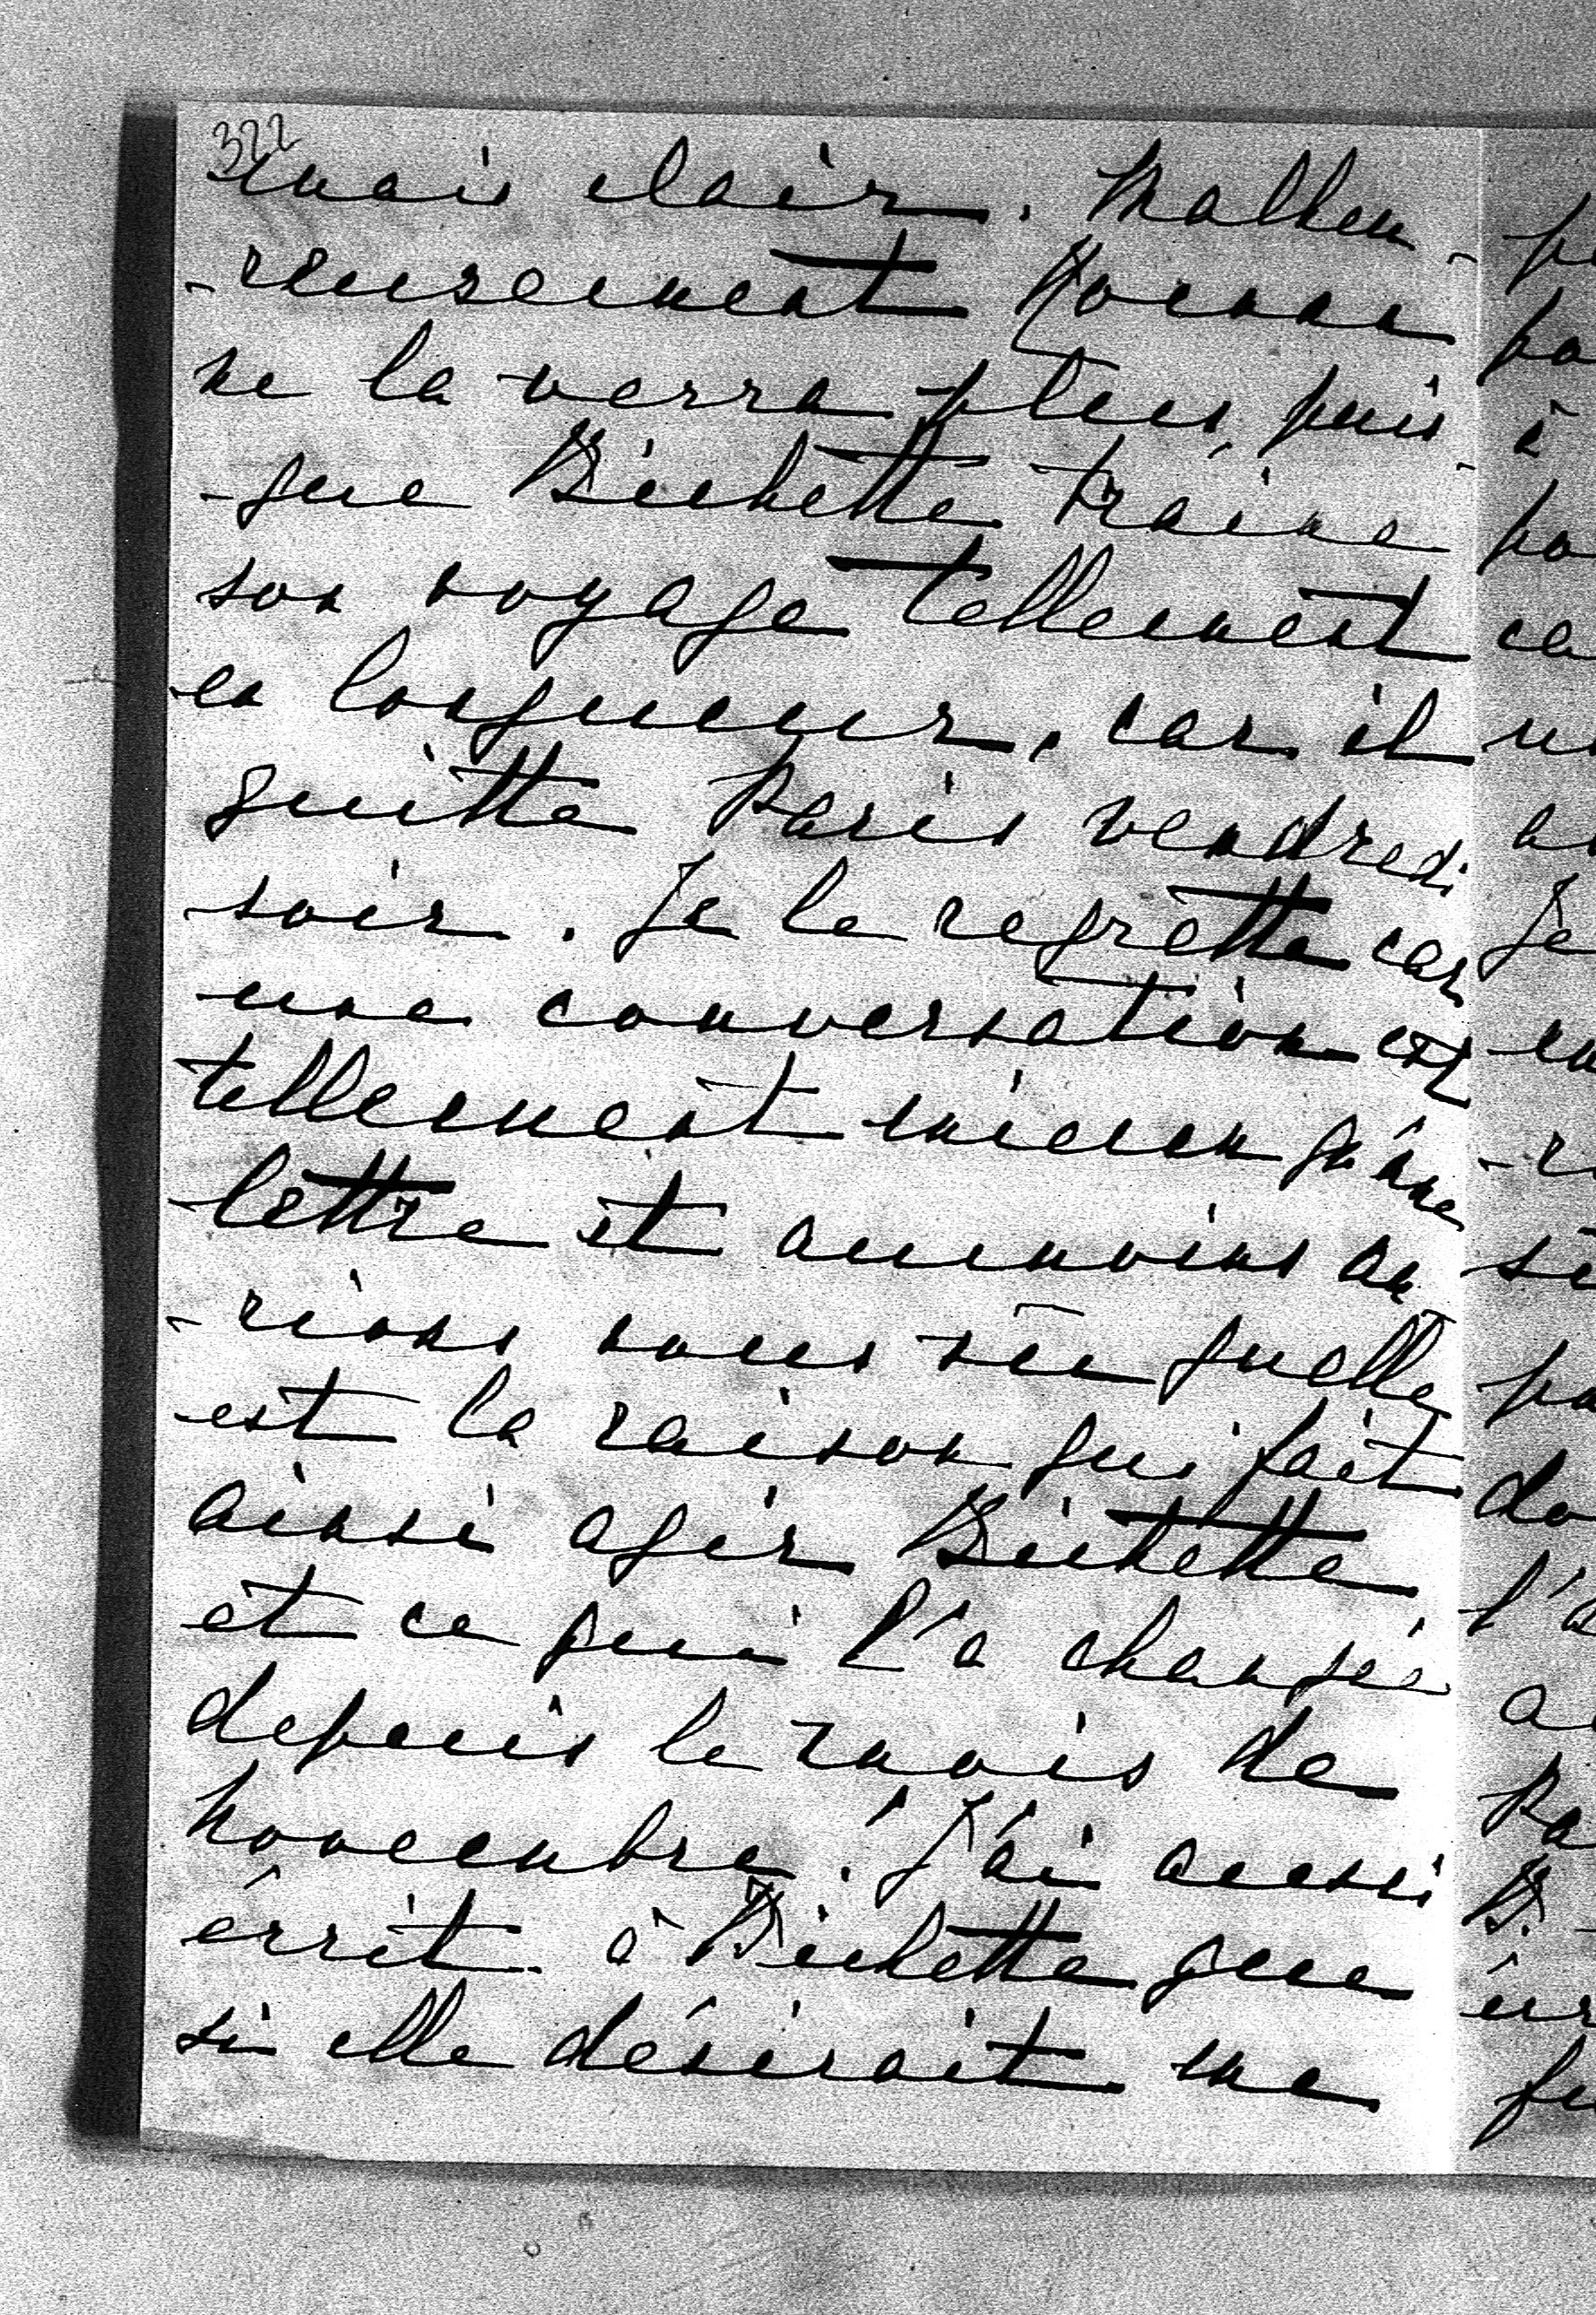 322
mais clair. Malheu-
-reusement
ne la verra plus, puis-
-que Bichette traine
son voyage tellement
en longueur, car il
quitte Paris vendredi
soir. Je le regrette car
une conversation est
tellement mieux qu'une
lettre et aumoins au-
-rions nous su quelle
est la raison qui fait
ainsi agir Bichette
et ce qui l'a changée
depuis le mois de
Novembre. J'ai aussi
écrit à Bichette que
si elle désirait me